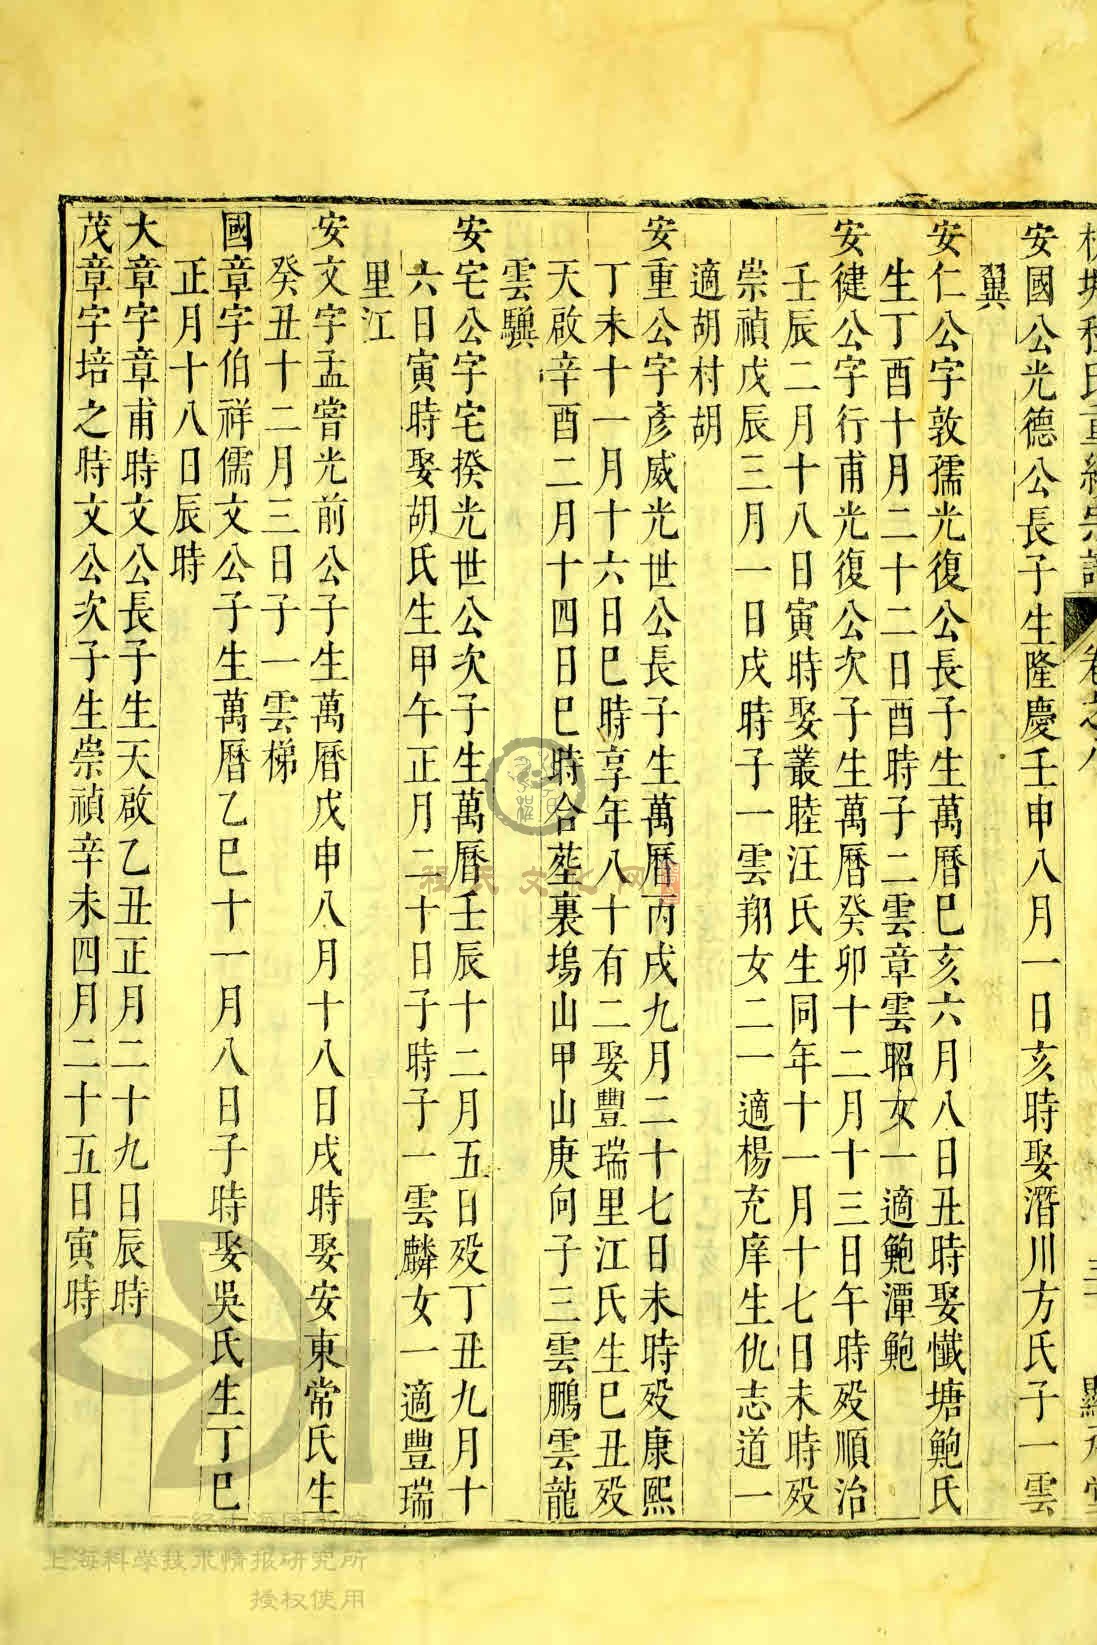 程氏重編宗譜
卷之八
安國公光德公長子生隆慶壬申八月一日亥時娶潛川方氏子一雲
翼
安仁公字敦孺光復公長子生萬曆己亥六月八日丑時娶巇塘鮑氏
生丁酉十月二十二日酉時子二雲章雲昭女一適鮑潭鮑
安健公字行甫光復公次子生萬曆癸卯十二月十三日午時歿順治
壬辰二月十八日寅時娶叢睦汪氏生同年十一月十七日未時歿
崇禎戊辰三月一日戌時子一雲翔女二一適楊充庠生仇志道一
適胡村胡
安重公字彥威光世公長子生萬曆丙戌九月二十七日未時歿康熙
丁未十一月十六日巳時享年八十有二娶豐瑞里江氏生己丑歿
天啟辛酉二月十四日巳時合塟裏塢山甲山庚向子三雲鵬雲龍
雲驥
安宅公字宅揆光世公次子生萬曆壬辰十二月五日歿丁丑九月十
六日寅時娶胡氏生甲午正月二十日子時子一雲麟女一適豐瑞
里江
安文字孟嘗光前公子生萬曆戊申八月十八日戌時娶安東常氏生
癸丑十二月三日子一雲梯
國章字伯祥儒文公子生萬曆乙巳十一月八日子時娶吳氏生丁巳
正月十八日辰時
大章字章甫時文公長子生天啟乙丑正月二十九日辰時
茂章字培之時文公次子生崇禎辛未四月二十五日寅時
程氏文化网
上海科学技术情报研究所
授权使用